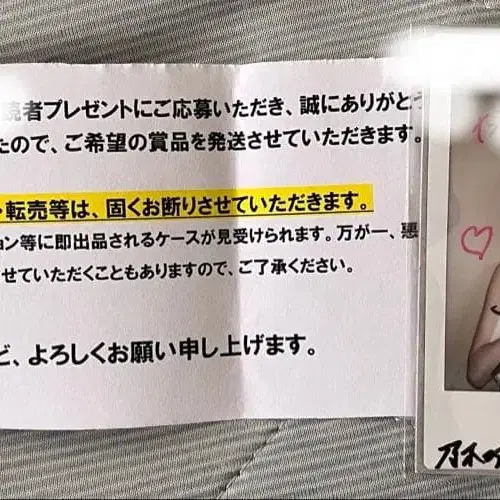 読者プレゼントにご応募いただき、誠にありがとう
たので、ご希望の賞品を発送させていただきます。
・転売等は、固くお断りさせていただきます。
ョン等に即出品されるケースが見受けられます。万が一、悪
せていただくこともありますので、ご了承ください。
ど、よろしくお願い申し上げます。
乃木